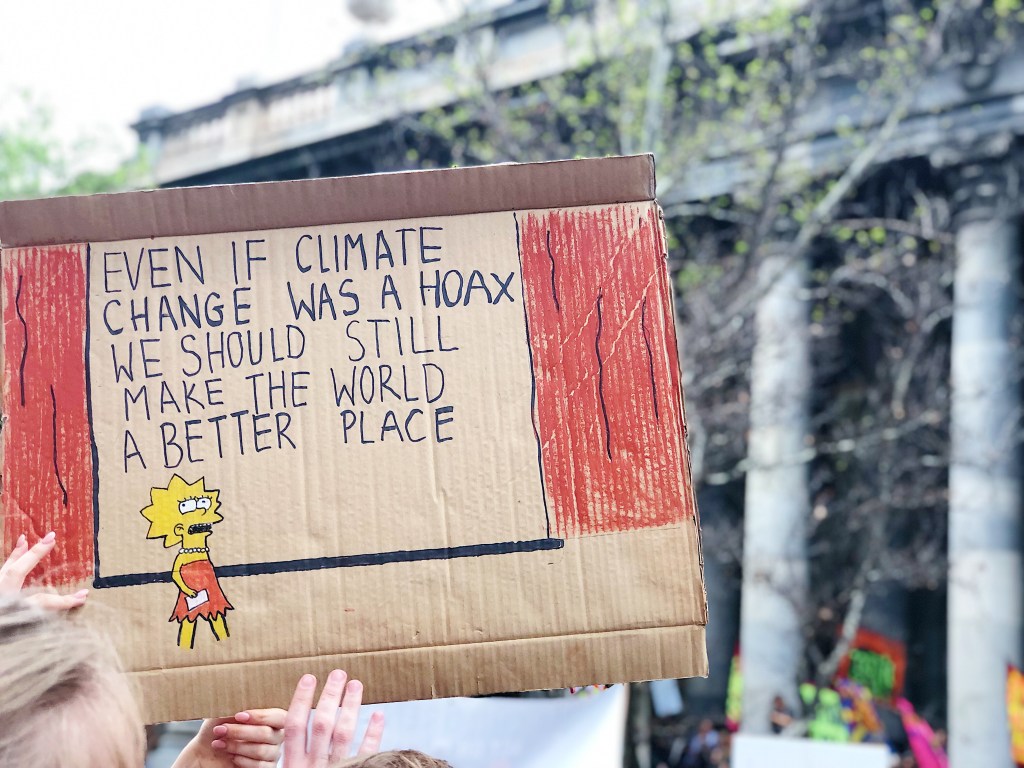 EVEN IF CLIMATE
CHANGE WAS A HOAX
WE SHOULD STILL
MAKE THE WORLD
A BETTER PLACE